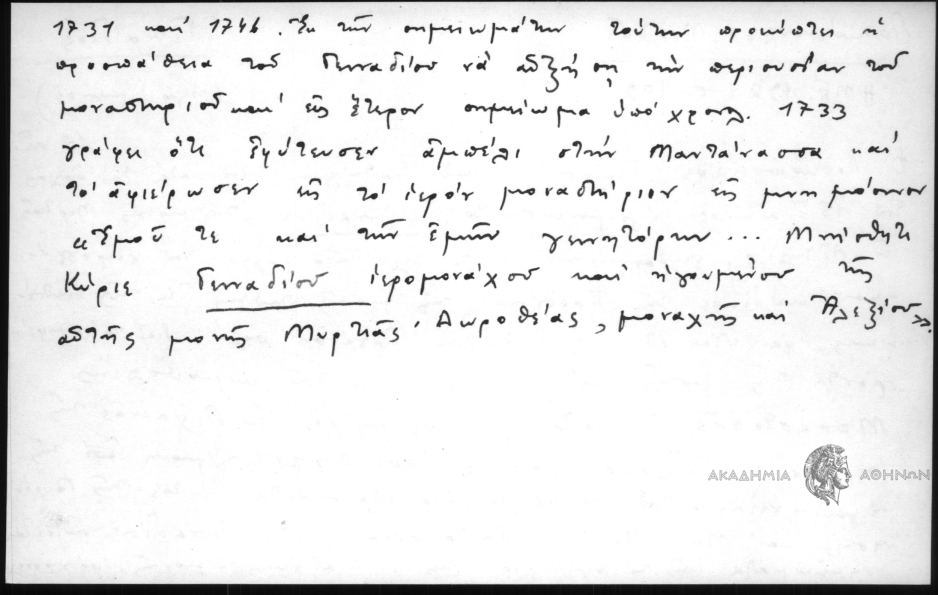 1731 καὶ 1746. Ἐκ τῶν σημειωμάτων τούτων προκύπτει ἡ
προσπάθεια τοῦ Γενναδίου νὰ αὐξήσῃ τὴν περιουσίαν τοῦ
μοναστηρίου καὶ εἰς ἕτερον σημείωμα ὑπὸ χρονλ. 1733
γράφει ὅτι ἐφύτευσεν ἀμπέλι στὴν Μαντάνασσα καὶ
τὸ ἀφιέρωσεν εἰς τὸ ἱερὸν μοναστήριον εἰς μνημόσυνον
"ἐμοῦ τε καὶ τῶν ἐμῶν γεννητόρων... Μνήσθητι
Κύριε Γενναδίου ἱερομονάχου καὶ ἡγουμένου τῆς
αὐτῆς μονῆς Μυρτιᾶς, Δωροθέας, μοναχῆς καὶ Ἀλεξίου».
ΑΚΑΔΗΜΙΑ ΑΘΗΝΩΝ